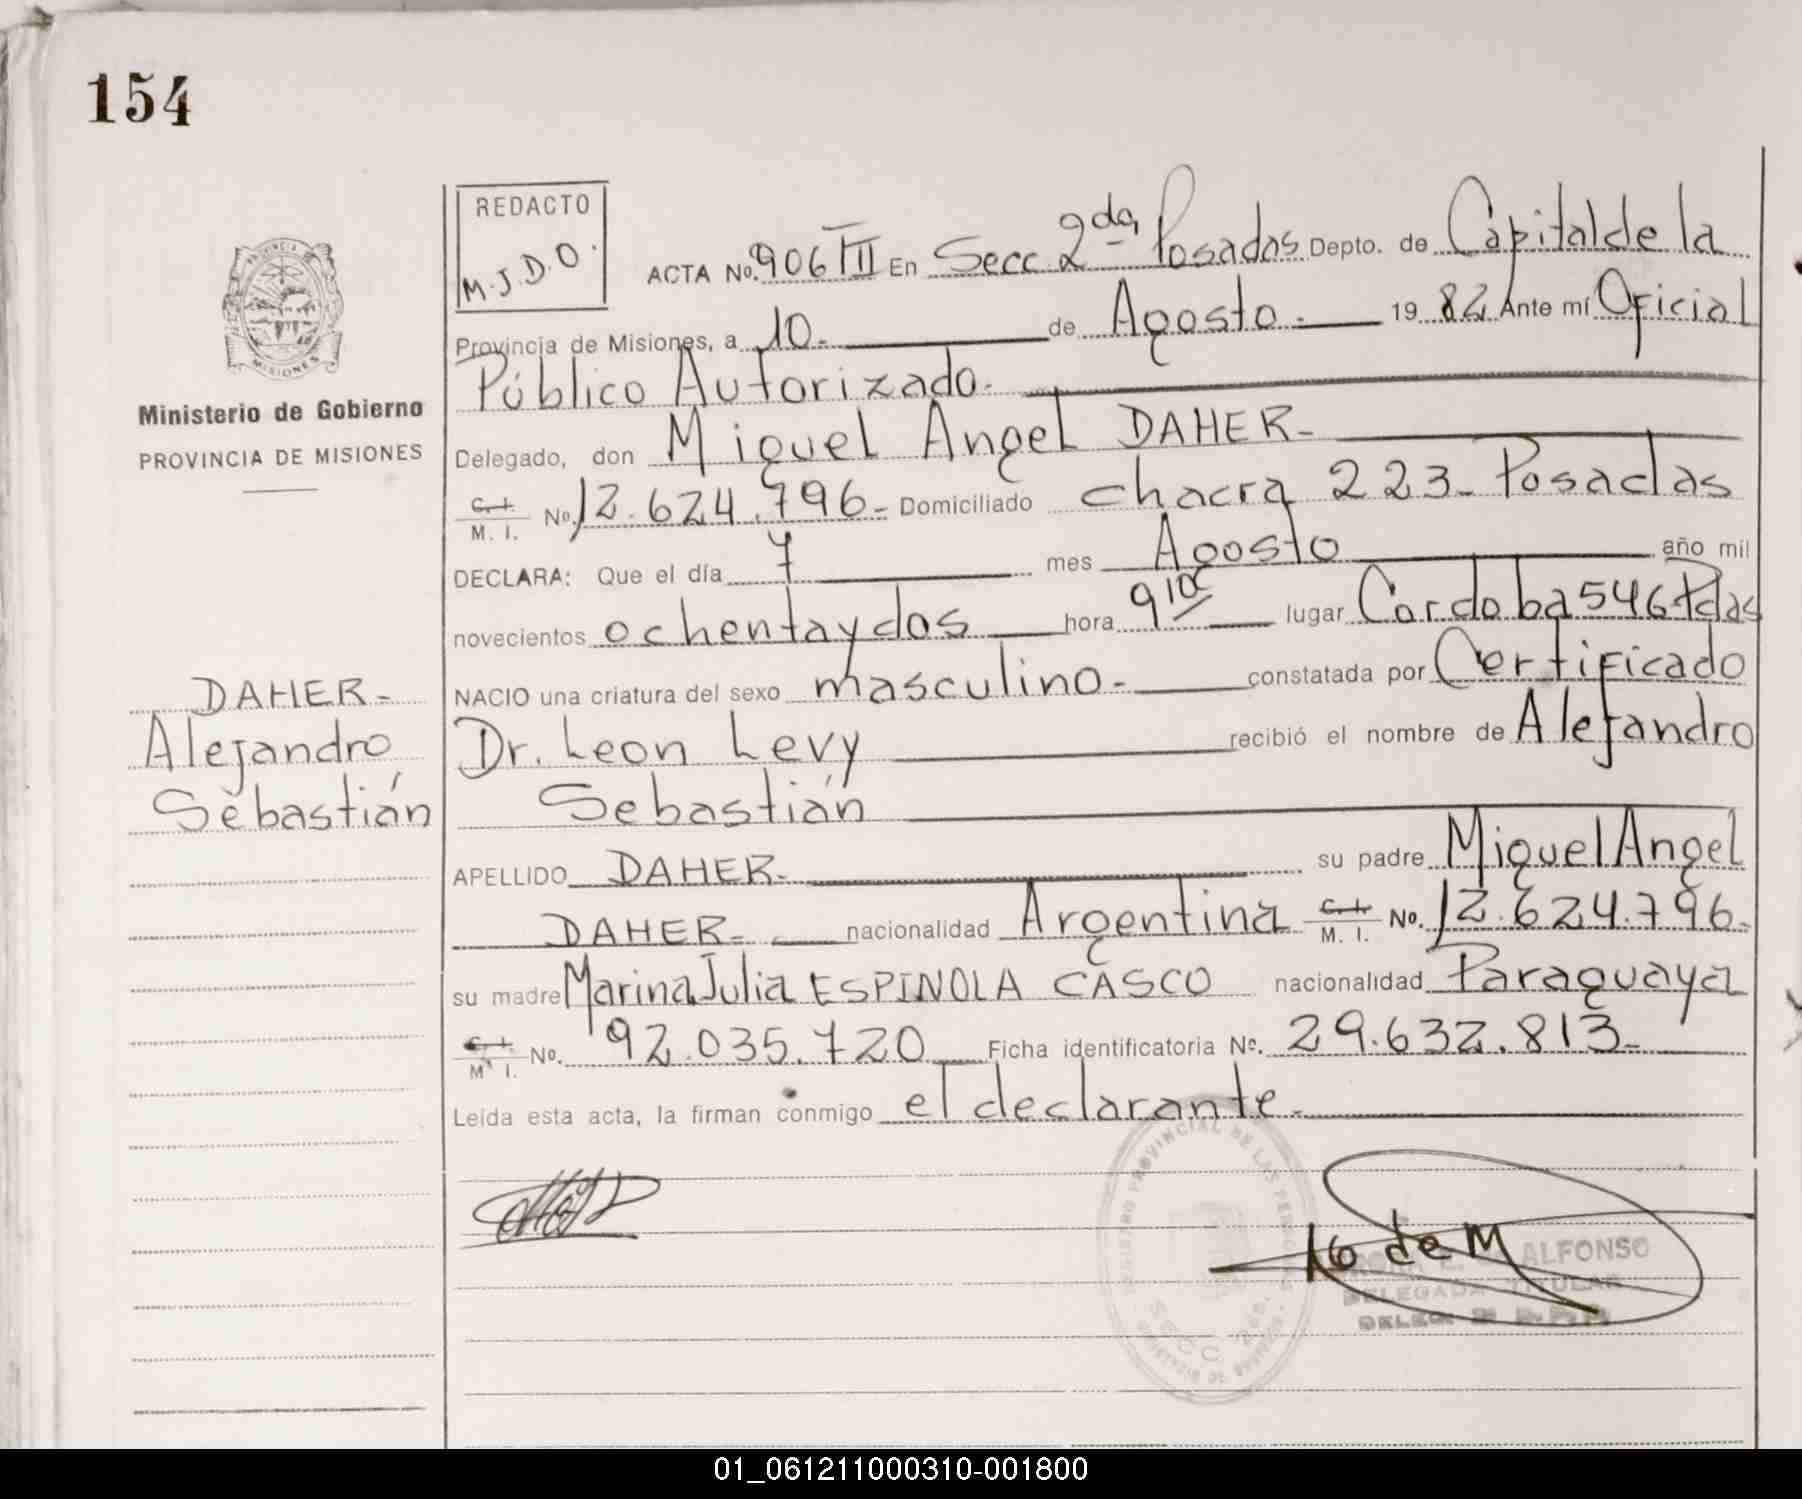 154
REDACTO
M.J.D.O.
ACTA No. 906 TII En Secc 2da Posadas Depto. de Capital de la
Provincia de Misiones, a 10.- de Agosto.- 1982 Ante mí Oficial
Público Autorizado.-
Delegado, don Miguel Angel DAHER-
C. I. M. I. No. 12.624.796- Domiciliado chacra 223- Posadas
DECLARA: Que el día 7 mes Agosto año mil
novecientos ochentaydos hora 9 10 lugar Cordoba 546 Pdas
NACIO una criatura del sexo masculino- constatada por Certificado
Dr. Leon Levy recibió el nombre de Alejandro
Sebastián
APELLIDO DAHER- su padre Miguel Angel
DAHER- nacionalidad Argentina C. I. M. I. No. 12.624.796-
su madre Marina Julia ESPINOLA CASCO nacionalidad Paraguaya
C. I. M. I. No. 92.035.720 Ficha identificatoria Nº. 29.632.813-
Leída esta acta, la firman conmigo el declarante-
PROVINCIA
MISIONES
Ministerio de Gobierno
PROVINCIA DE MISIONES
DAHER-
Alejandro
Sebastián
REGISTRO PROVINCIAL DE LAS PERSONAS
SECC
de M
ALFONSO
DELEGADA TITULAR
01_061211000310-001800